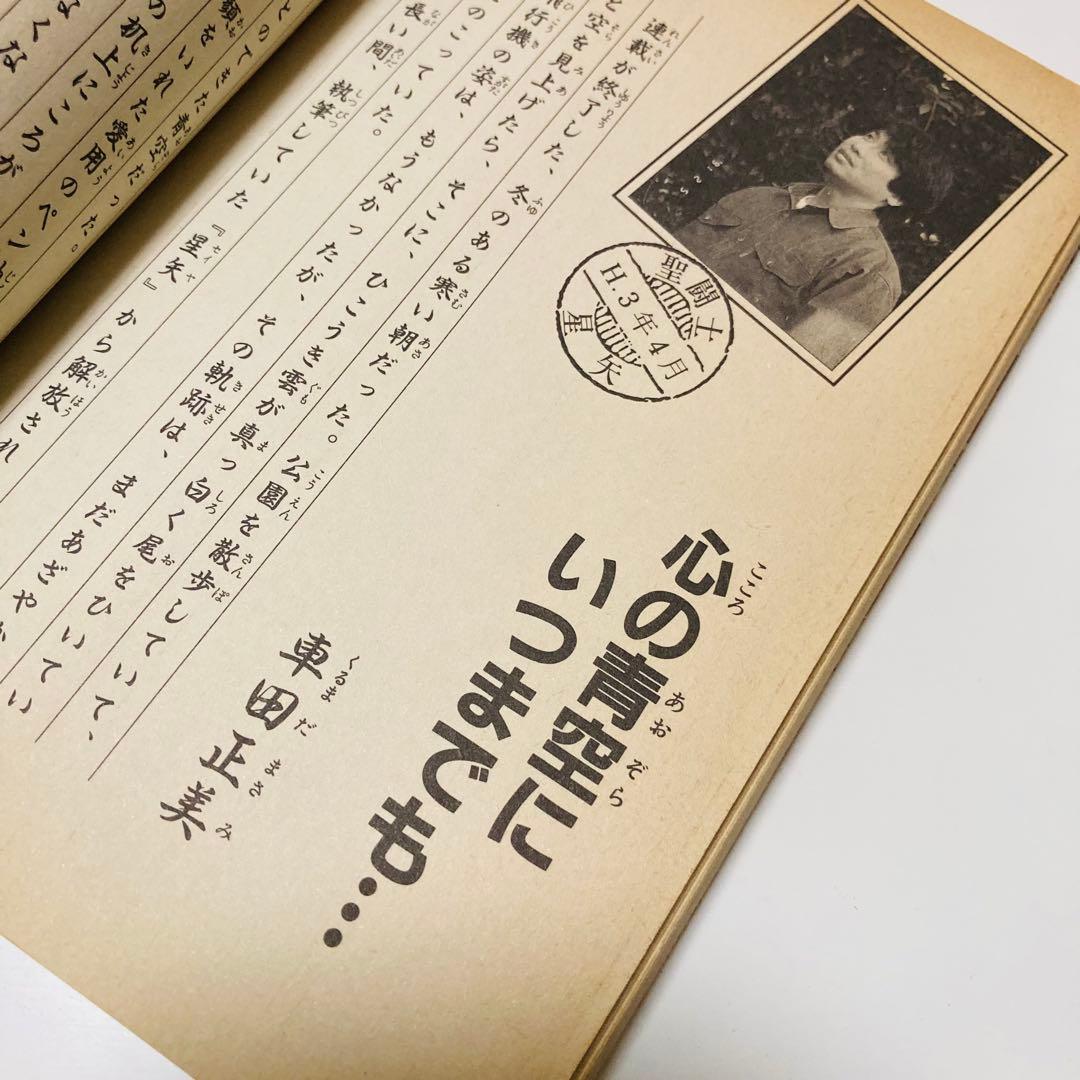 心の青空に
いつまでも…
車田正美
聖闘士
H.3年4月
星矢
連載が終了した、冬のある寒い朝だった。公園を散歩していて、
と空を見上げたら、そこに、ひこうき雲が真っ白く尾をひいてい
行機の姿は、もうなかったが、その軌跡は、まだあざやか
のこっていた。
長い間、執筆していた『星矢』から解放され
とのてきた青空だった。
顔をいれた愛用のペン
の机上にころが
くな